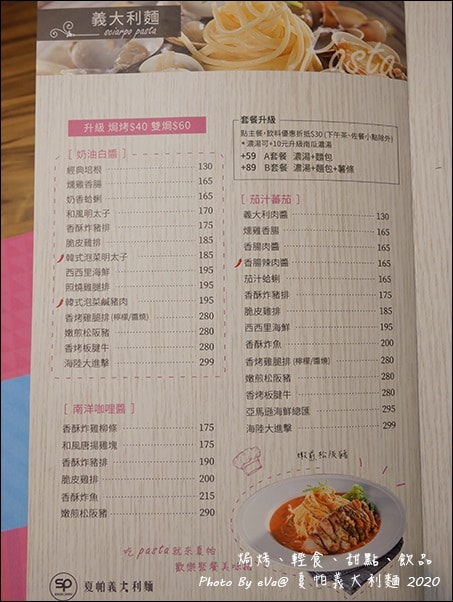 義大利麵
sciarpo pasta
Pasta
升級 焗烤$40 雙焗$60
[ 奶油白醬 ]
經典培根 130
燻雞香腸 165
奶香蛤蜊 165
和風明太子 170
香酥炸豬排 175
脆皮雞排 185
韓式泡菜明太子 185
西西里海鮮 195
照燒雞腿排 195
韓式泡菜鹹豬肉 195
香烤雞腿排 (檸檬/醬燒) 280
嫩煎松阪豬 280
香烤板腱牛 280
海陸大進擊 299
[ 南洋咖哩醬 ]
香酥炸雞柳條 175
和風唐揚雞塊 175
香酥炸豬排 190
脆皮雞排 200
香酥炸魚 215
嫩煎松阪豬 290
吃pasta就來夏帕
歡樂聚餐美味
sp
夏帕義大利麵
套餐升級
點主餐,飲料優惠折抵$30 (下午茶、佐餐小點除外)
*濃湯可+10元升級南瓜濃湯
+59 A套餐 濃湯+麵包
+89 B套餐 濃湯+麵包+薯條
[ 茄汁蕃茄 ]
義大利肉醬 130
燻雞香腸 165
香腸肉醬 165
香腸辣肉醬 165
茄汁蛤蜊 165
香酥炸豬排 175
脆皮雞排 185
西西里海鮮 195
香酥炸魚 200
香烤雞腿排 (檸檬/醬燒) 280
嫩煎松阪豬 280
香烤板腱牛 280
亞馬遜海鮮總匯 295
海陸大進擊 299
嫩煎松阪豬
焗烤、輕食、甜點、飲品
Photo By eVa@ 夏帕義大利麵 2020